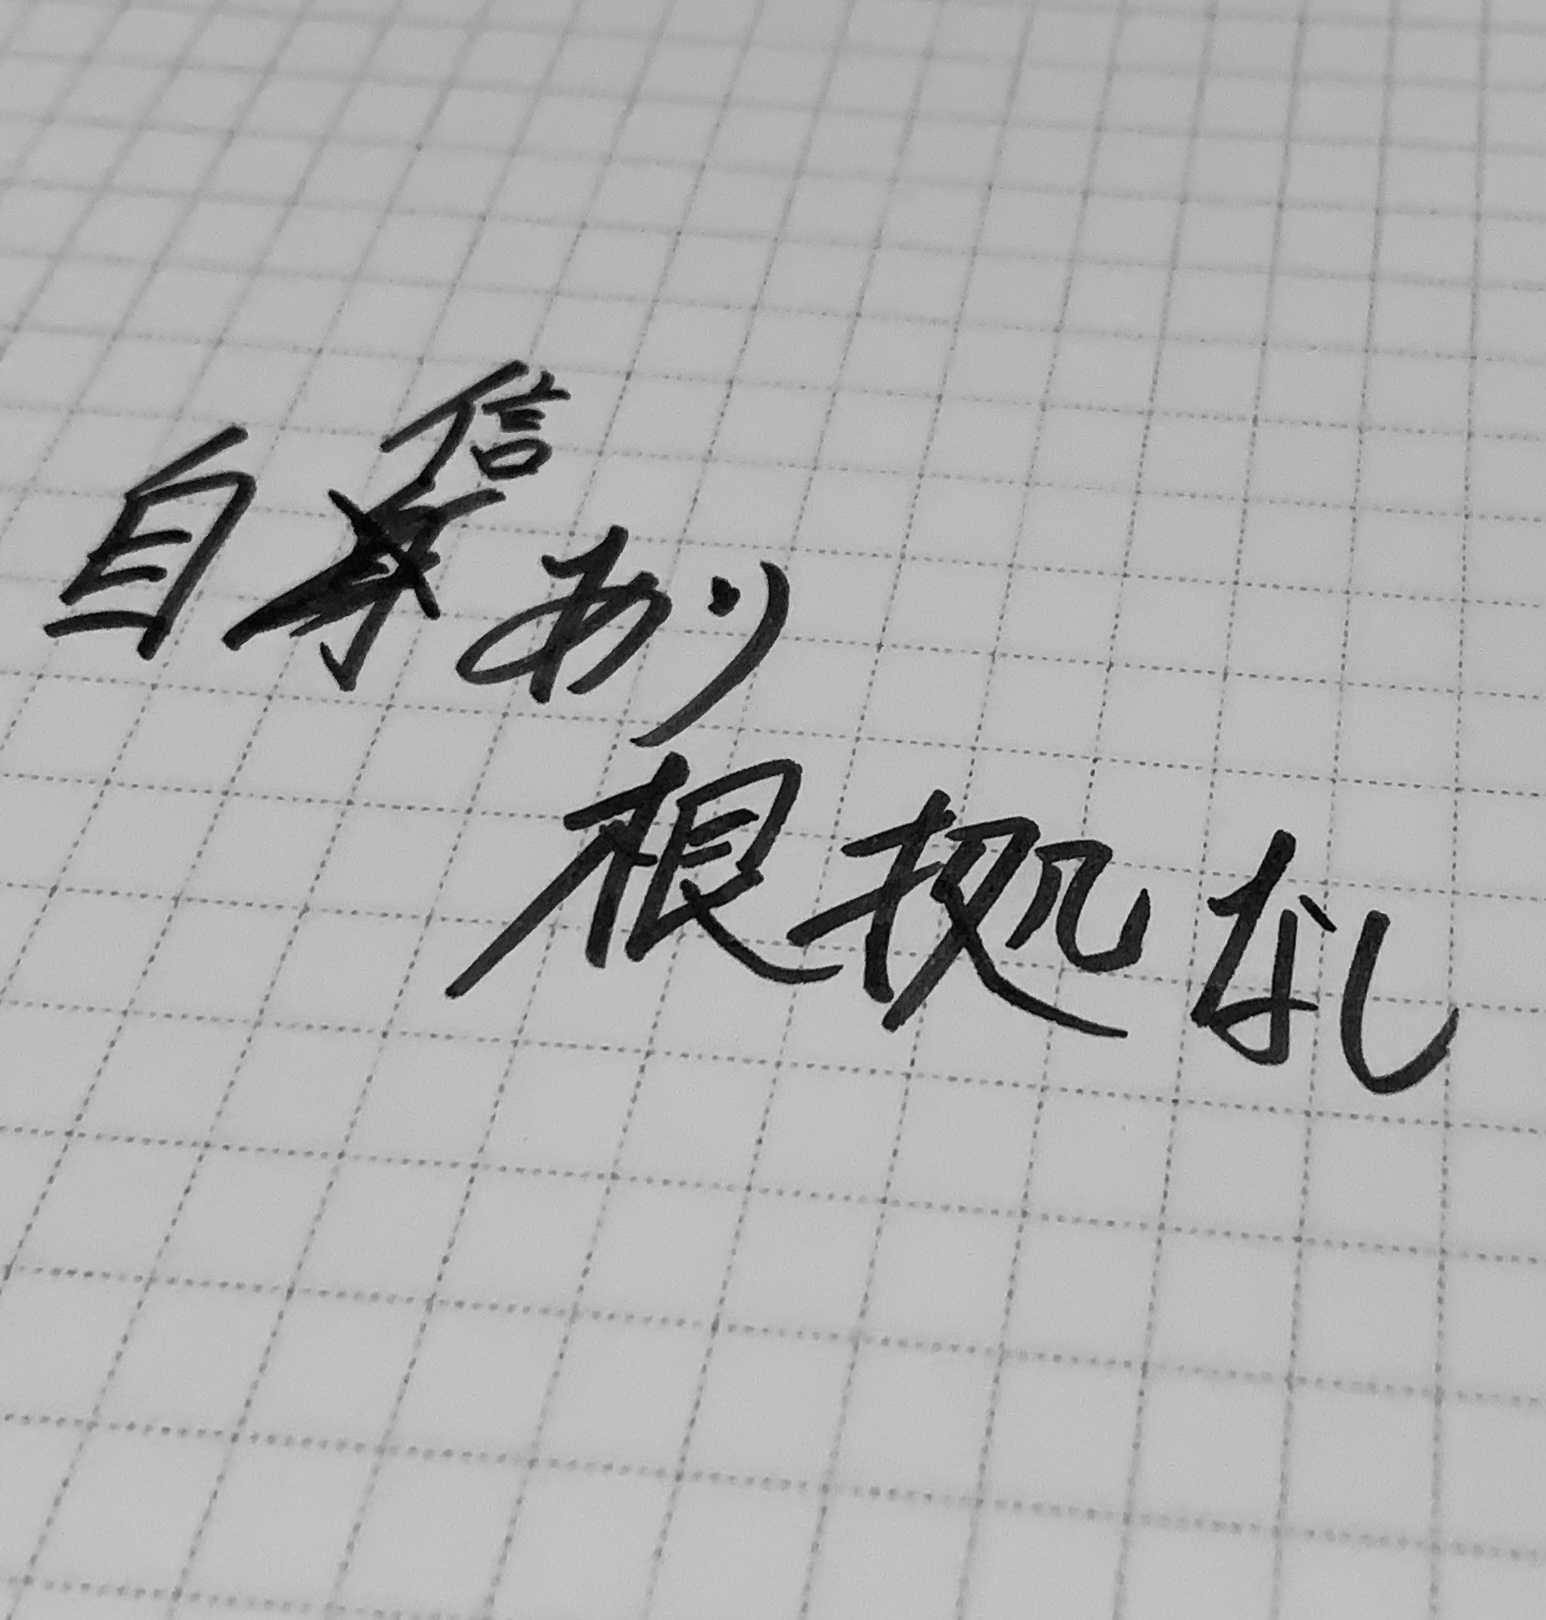 自信あり
根拠なし